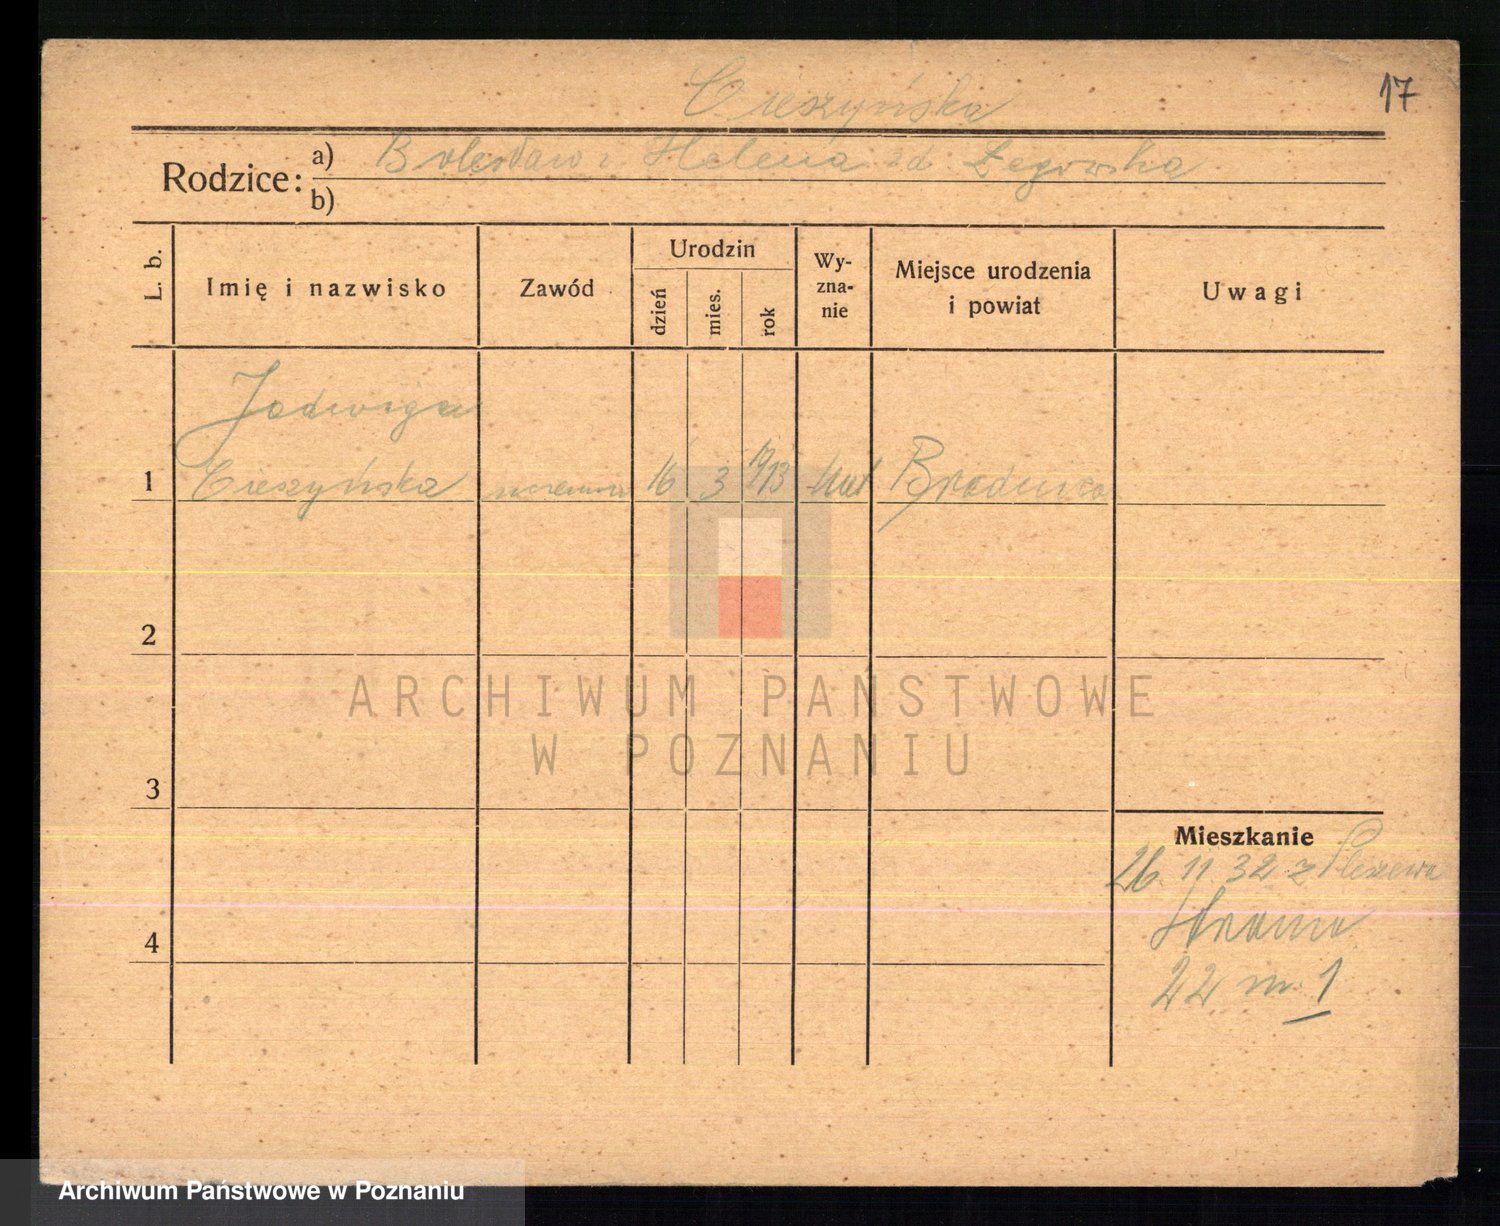 17
Cieszyńska
Rodzice: a) Bolesław i Helena zd Łęgowska
b)
L. b.
Imię i nazwisko
Zawód
Urodzin
dzień
mies.
rok
Wy-
zna-
nie
Miejsce urodzenia
i powiat
Uwagi
Jadwiga
1 Cieszyńska 16 3 1913 Brodnica
2
3
4
Mieszkanie
26 11 32 z Pleszewa
22 m. 1
ARCHIWUM PAŃSTWOWE
W POZNANIU
Archiwum Państwowe w Poznaniu